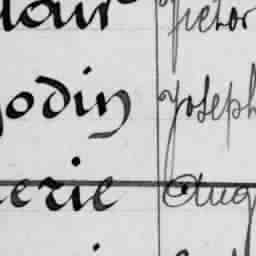 lair Victor
odin Joseph
erie Aug